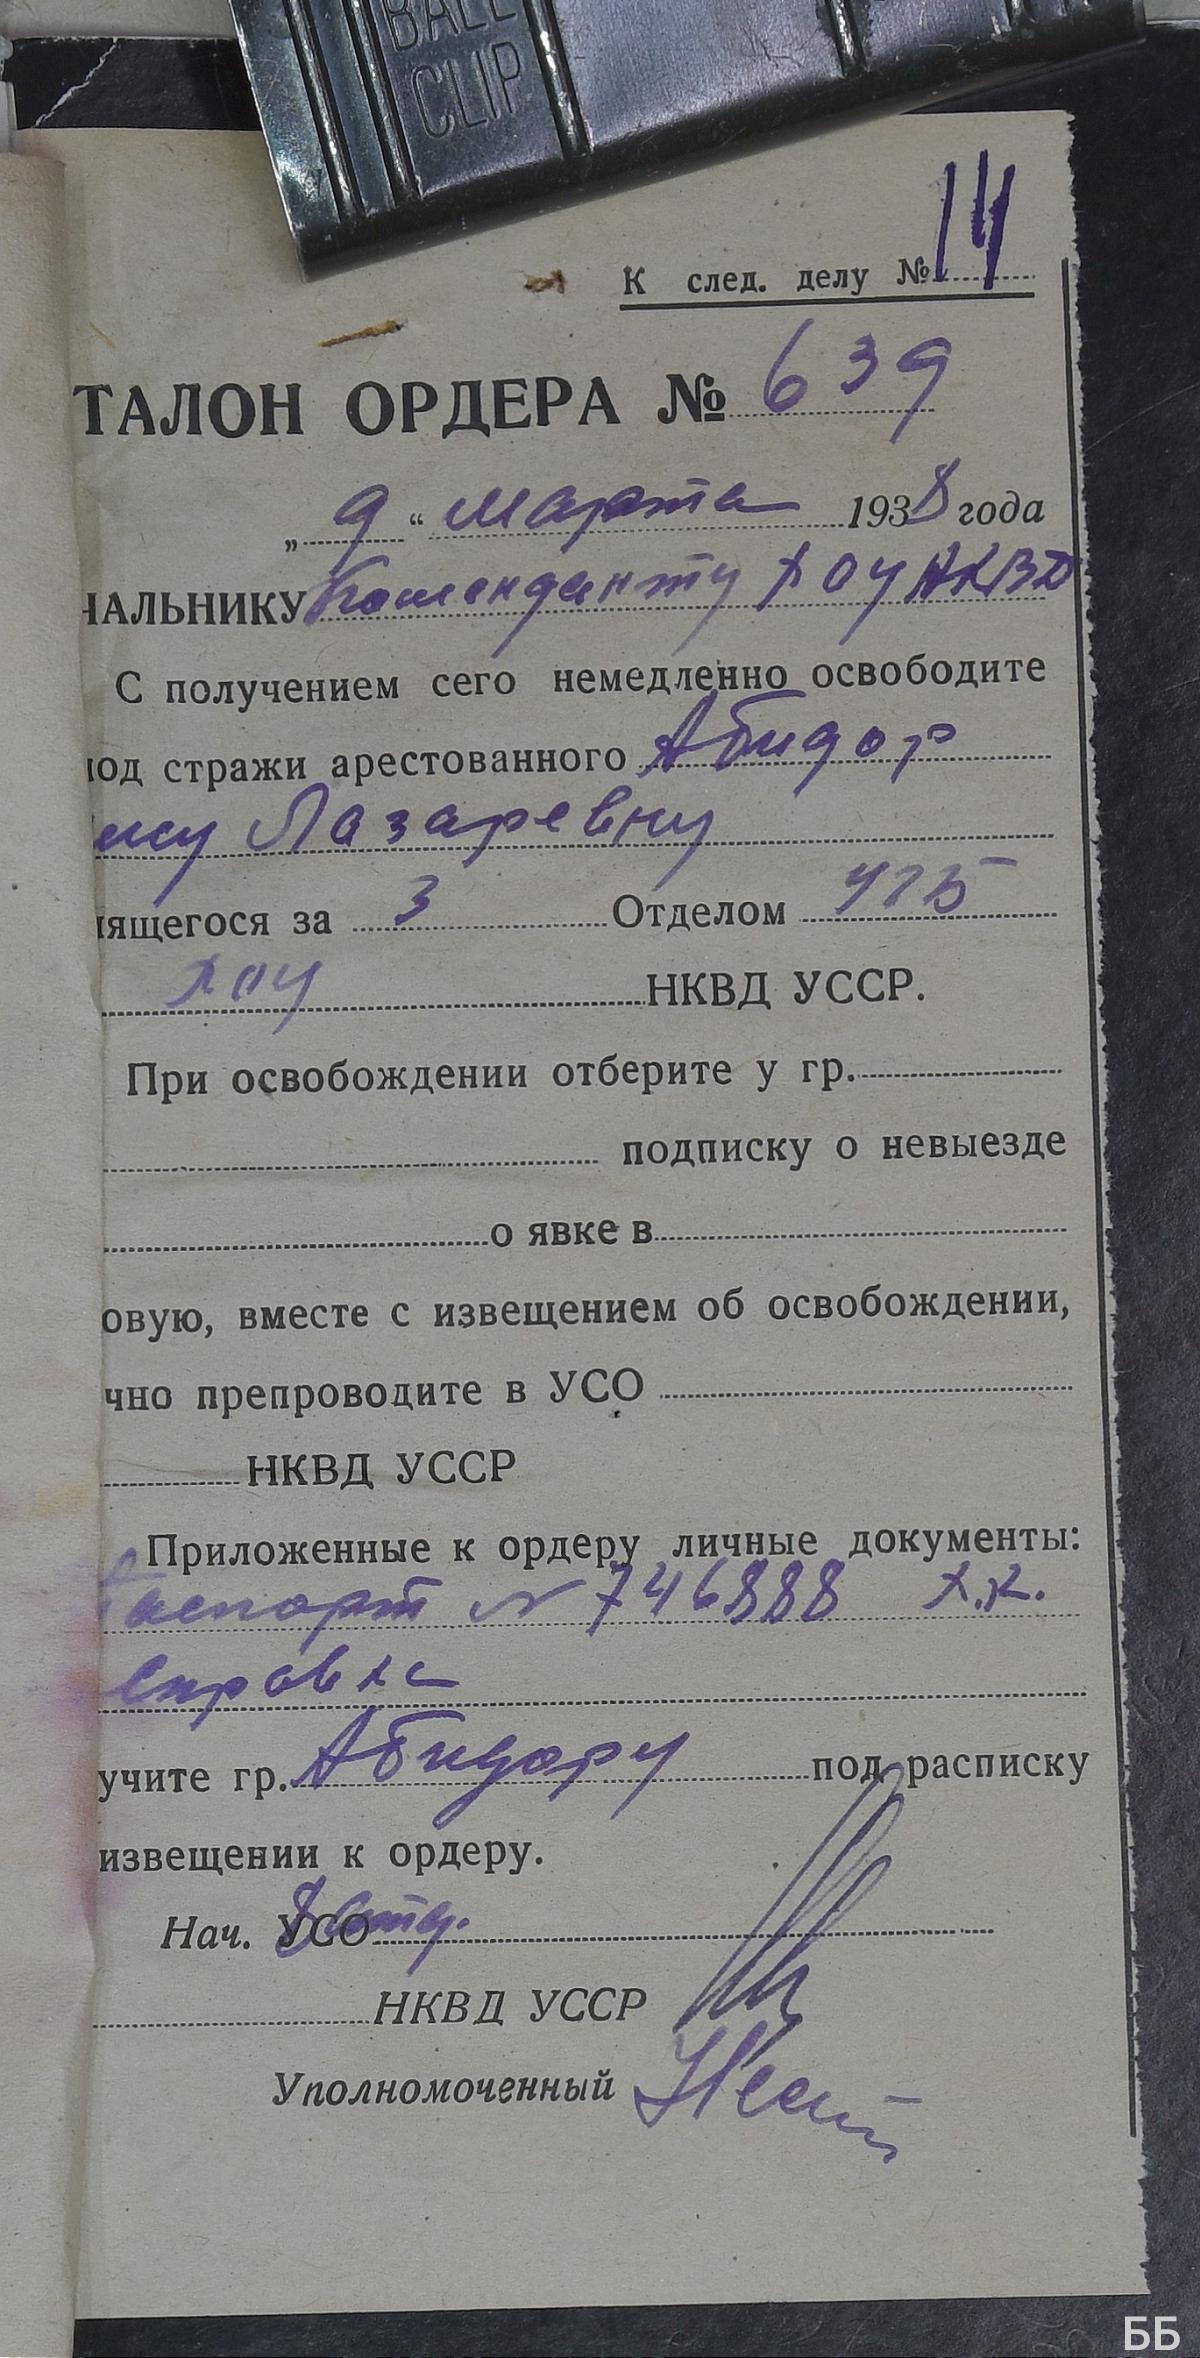 BALL
CLIP
К след. делу № 14
ТАЛОН ОРДЕРА № 639
„ 9 “ Марта 1938 года
ЧАЛЬНИКУ Коменданту ХОУ НКВД
С получением сего немедленно освободите
под стражи арестованного Абидор
Лазаревну
лящегося за 3 Отделом УГБ
ХОУ НКВД УССР.
При освобождении отберите у гр.
подписку о невыезде
о явке в
овую, вместе с извещением об освобождении,
чно препроводите в УСО
НКВД УССР
Приложенные к ордеру личные документы:
Паспорт N 746888
Справка
учите гр. Абидору под расписку
извещении к ордеру.
Нач. УСО 8 отд.
НКВД УССР
Уполномоченный
ББ